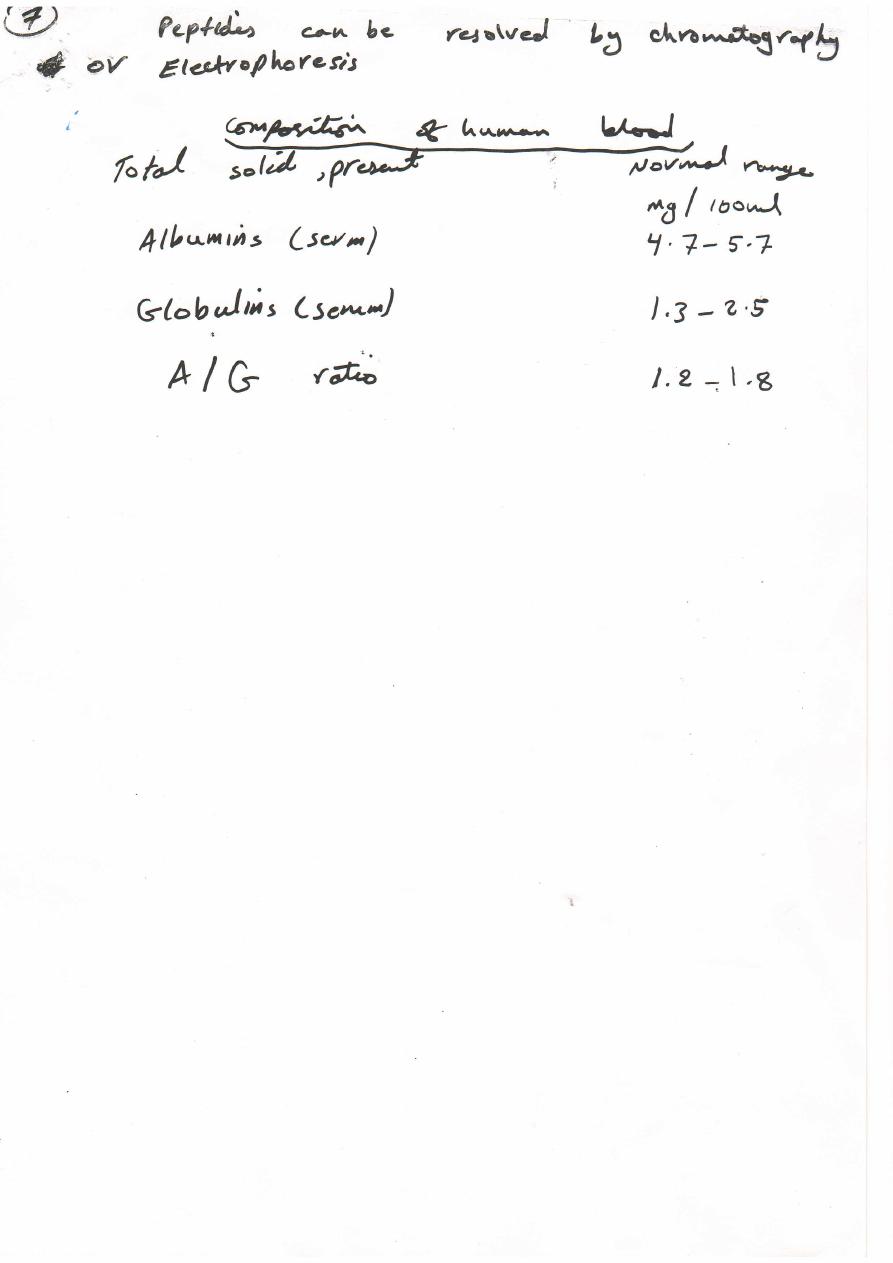 7
Peptides can be resolved by chromatography
or Electrophoresis
Composition of human blood
Total solid, present Normal range
mg / 100ml
Albumins (serm) 4.7 – 5.7
Globulins (serum) 1.3 – 2.5
A / G ratio 1.2 – 1.8